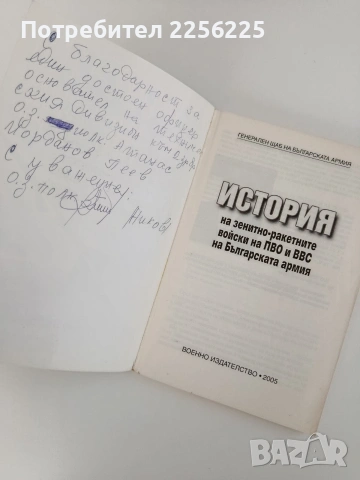 Потребител 2256225
С благодарност за
един достоен офицер
основател на
сания дивизион към
о.з. полк. Атанас
Йорданов Пеев
С уважение:
о.з. полк. Николов
ГЕНЕРАЛЕН ЩАБ НА БЪЛГАРСКАТА АРМИЯ
ИСТОРИЯ
на зенитно-ракетните
войски на ПВО и ВВС
на Българската армия
ВОЕННО ИЗДАТЕЛСТВО • 2005
BAZAR